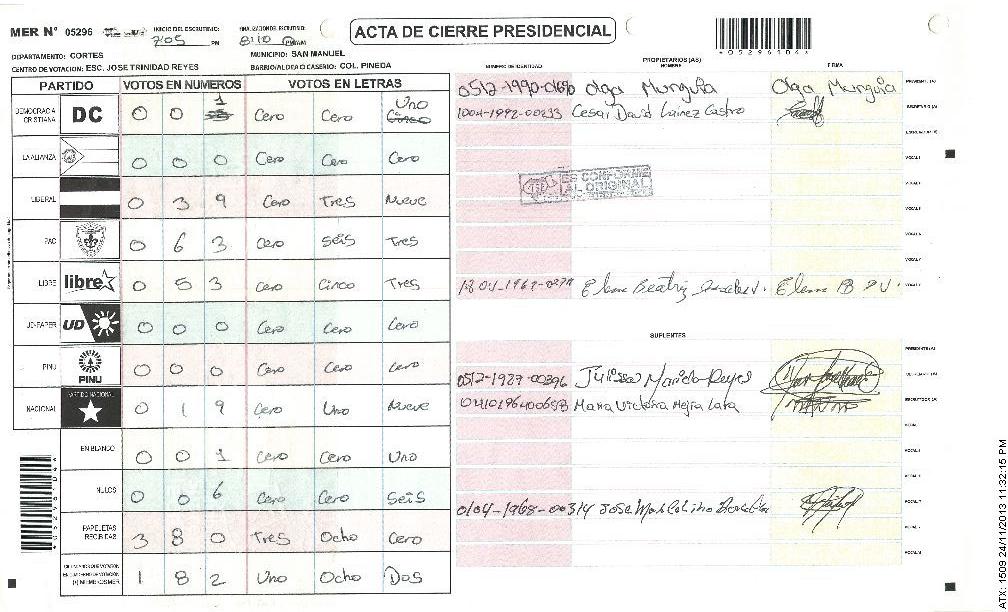 MER N° 05296
INICIO DEL ESCRUTINIO: 7:05 PM
FINALIZACION DEL ESCRUTINIO: 8:10 PM/AM
ACTA DE CIERRE PRESIDENCIAL
*05296104*
DEPARTAMENTO: CORTES
MUNICIPIO: SAN MANUEL
CENTRO DE VOTACION: ESC. JOSE TRINIDAD REYES
BARRIO/ALDEA O CASERIO: COL. PINEDA
PARTIDO VOTOS EN NUMEROS VOTOS EN LETRAS
DEMOCRACIA CRISTIANA DC 0 0 1 Cero Cero Uno
LA ALIANZA 0 0 0 Cero Cero Cero
LIBERAL 0 3 9 Cero Tres Nueve
PAC 0 6 3 Cero Seis Tres
LIBRE libre 0 5 3 Cero Cinco Tres
UD-FAPER UD 0 0 0 Cero Cero Cero
PINU PINU 0 0 0 Cero Cero Cero
NACIONAL PARTIDO NACIONAL 0 1 9 Cero Uno Nueve
EN BLANCO 0 0 1 Cero Cero Uno
NULOS 0 0 6 Cero Cero Seis
PAPELETAS RECIBIDAS 3 8 0 Tres Ocho Cero
1 8 2 Uno Ocho Dos
PROPIETARIOS (AS)
NUMERO DE IDENTIDAD NOMBRE FIRMA
Olga Munguia Olga Munguia PRESIDENTE (A)
1004-1992-00233 Cesar David Lainez Castro SECRETARIO (A)
ESCRUTADOR (A)
VOCAL I
ES CONFORME
AL ORIGINAL
Elena Beatriz
SUPLENTES
PRESIDENTE (A)
0512-1927-00396 Julissa Maricela Reyes SECRETARIO (A)
Maria Victoria Mejia Lara ESCRUTADOR (A)
0104-1968-00314 Jose
ATX: 1509 24/11/2013 11:32:15 PM